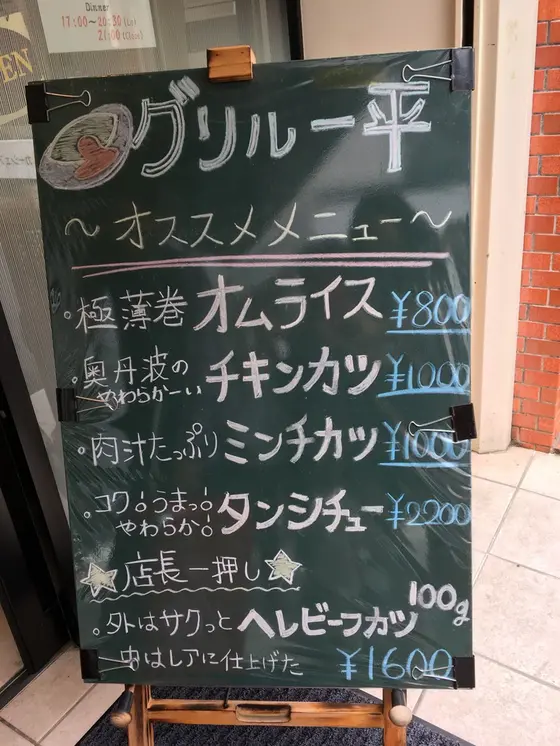 Dinner
17:00~20:30(Lo)
21:00(Close)
EN
グリル一平
～オススメメニュー～
。極薄巻オムライス ¥800
。奥丹波の
やわらかーいチキンカツ ¥1000
。肉汁たっぷりミンチカツ ¥1000
。コク!うまっ!
やわらか!タンシチュー ¥2200
店長一押し
。外はサクっとヘレビーフカツ 100g
中はレアに仕上げた ¥1600